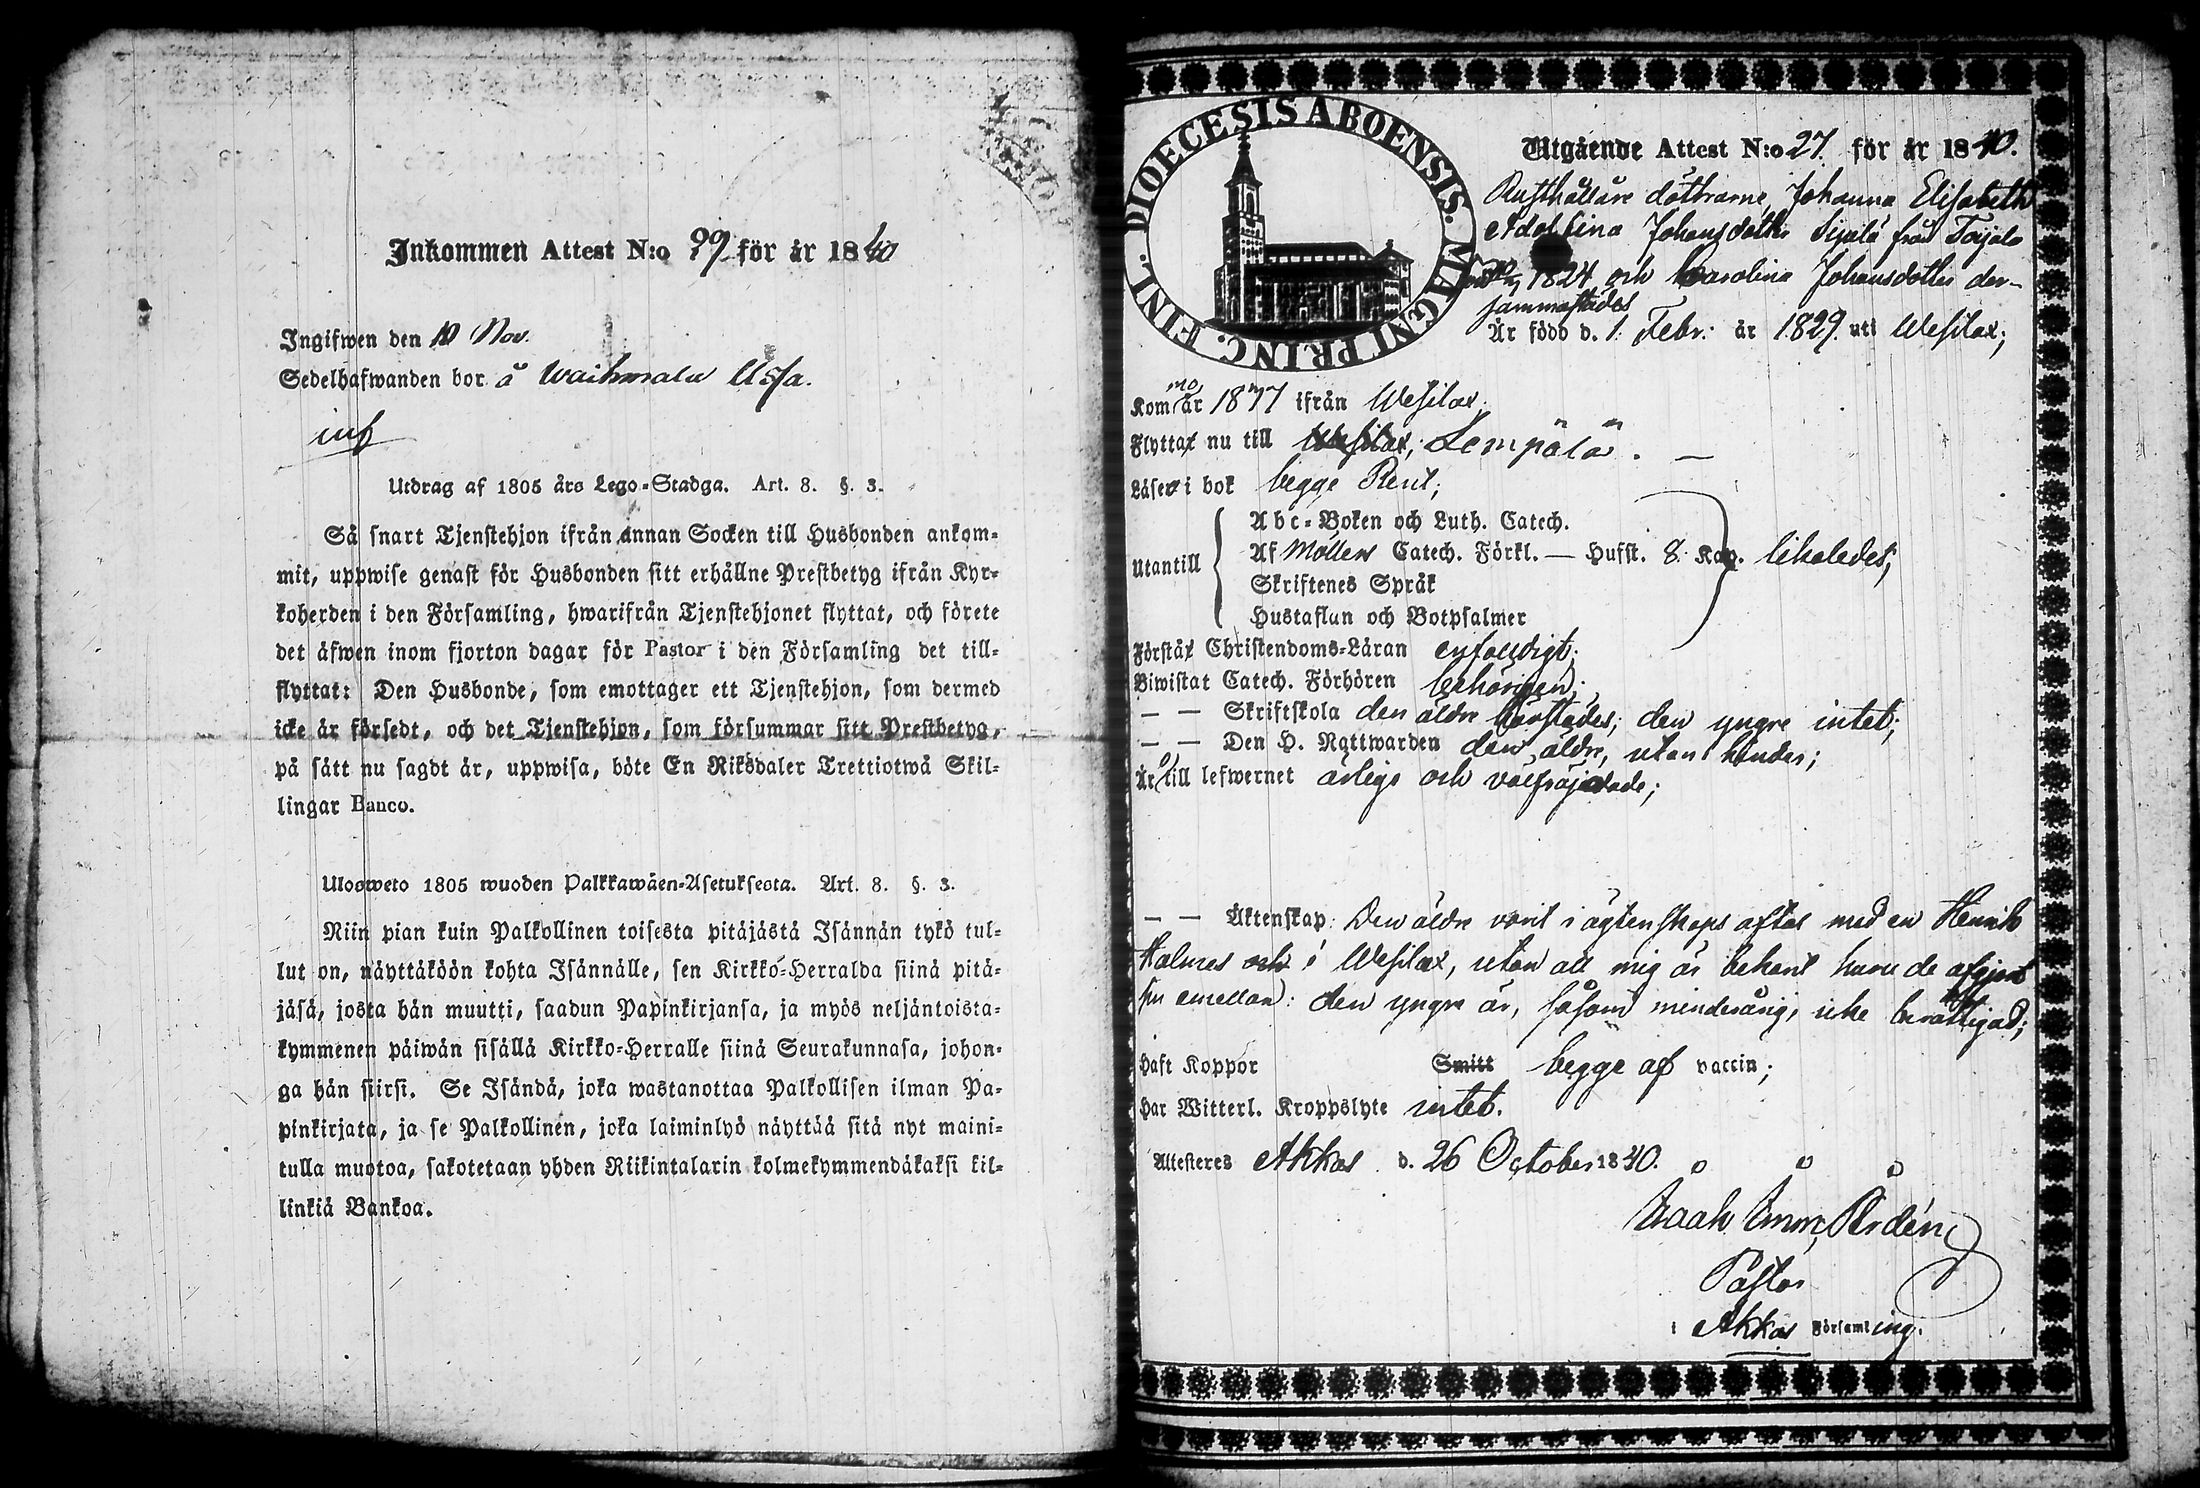 Inkommen Attest N:o 99 för år 1840
Ingifwen den 10 Nov.
Sedelhafwanden bor å Waihmala
inf
Utdrag af 1805 års Lego-Stadga. Art. 8. §. 3.
Så snart Tjenstehjon ifrån annan Socken till Husbonden ankom-
mit, uppwise genast för Husbonden sitt erhållne Prestbetyg ifrån Kyr-
koherden i den Församling, hwarifrån Tjenstehjonet flyttat, och förete
det äfwen inom fjorton dagar för Pastor i den Församling det till-
flyttat: Den Husbonde, som emottager ett Tjenstehjon, som dermed
icke är försedt, och det Tjenstehjon, som försummar sitt Prestbetyg,
på sätt nu sagdt är, uppwisa, böte En Riksdaler Trettiotwå Skil-
lingar Banco.
Ulosweto 1805 wuoden Palkkawäen-Asetuksesta. Art. 8. §. 3.
Niin pian kuin Palkollinen toisesta pitäjästä Isännän tykö tul-
lut on, näyttäköön kohta Isännälle, sen Kirkko-Herralda siinä pitä-
jäsä, josta hän muutti, saadun Papinkirjansa, ja myös neljäntoista-
kymmenen päiwän sisällä Kirkko-Herralle siinä Seurakunnasa, johon-
ga hän siirsi. Se Isändä, joka wastanottaa Palkollisen ilman Pa-
pinkirjata, ja se Palkollinen, joka laiminlyö näyttää sitä nyt maini-
tulla muotoa, sakotetaan yhden Riikintalarin kolmekymmendäkaksi kil-
linkiä Bankoa.
DIOECESIS ABOENSIS. MAGNI PRINC. FINL.
Utgående Attest N:o 27. för år 1840.
Rusthållare döttrarne, Johanna Elisabeth
Adolfina Johansdotter Sipilä från Toijala
1824, och Carolina Johansdotter der-
sammastädes
Är född d. 1. Febr: år 1829. uti Wesilax;
Kommo år 18 ifrån Wesilax;
Flytta nu till Wesilax; Lempälä. —
Läser i bok begge Rent;
Utantill
Abc-Boken och Luth. Catech.
Af Möllers Catech. Förkl. — Hufst. 8. Kap. likaledes;
Skriftenes Språk
Hustaflan och Botpsalmer
Förstå Christendoms-Läran enfaldigt;
Biwistat Catech. Förhören behörigen;
— — Skriftskola den äldre härstädes; den yngre intet;
— — Den H. Nattwarden den äldre, utan hinder;
Är till lefwernet ärliga och välfräjdade;
— — Äktenskap: Den äldre varit i ägtenskaps aftal med en Henrik
Halmes och i Wesilax, utan att mig är bekant huru de afgjort
sin emellan: den yngre är, såsom minderårig, icke berättigad;
Haft Koppor Smitt begge af vaccin;
Har Witterl. Kroppslyte intet.
Attesteres Akkas d. 26 October 1840.
Isaak Imm,
Pastor
i Akkas Församling.